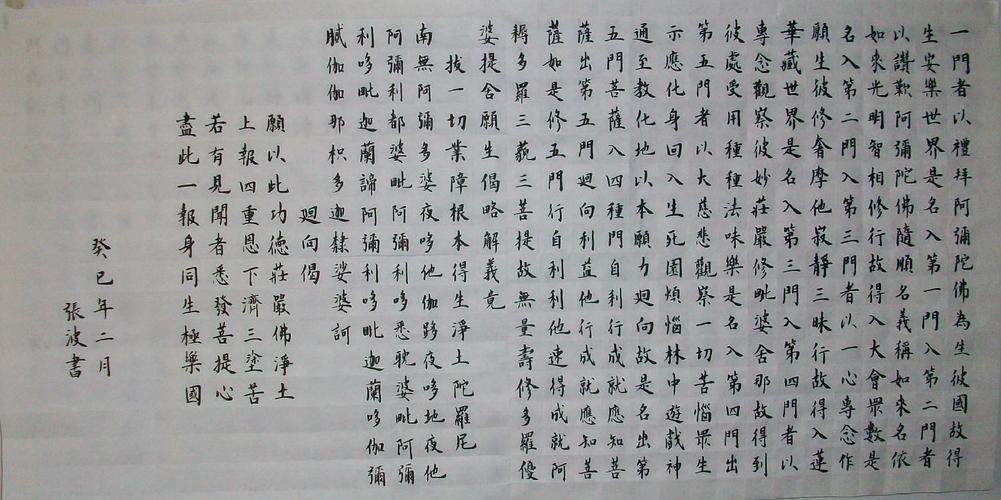 一門者以禮拜阿彌陀佛為生彼國故得
生安樂世界是名入第一門入第二門者
以讚歎阿彌陀佛隨順名義稱如來名依
如來光明智相修行故得入大會眾數是
名入第二門入第三門者以一心專念作
願生彼修奢摩他寂靜三昧行故得入蓮
華藏世界是名入第三門入第四門者以
專念觀察彼妙莊嚴修毗婆舍那故得到
彼處受用種種法味樂是名入第四門出
第五門者以大慈悲觀察一切苦惱眾生
示應化身回入生死園煩惱林中遊戲神
通至教化地以本願力迴向故是名出第
五門菩薩入四種門自利行成就應知菩
薩出第五門迴向利益他行成就應知菩
薩如是修五門行自利利他速得成就阿
耨多羅三藐三菩提故無量壽修多羅優
婆提舍願生偈略解義竟
拔一切業障根本得生淨土陀羅尼
南無阿彌多婆夜哆他伽跢夜哆地夜他
阿彌利都婆毗阿彌利哆悉耽婆毗阿彌
利哆毗迦蘭諦阿彌利哆毗迦蘭哆伽彌
膩伽伽那枳多迦隸婆婆訶
迴向偈
願以此功德莊嚴佛淨土
上報四重恩下濟三塗苦
若有見聞者悉發菩提心
盡此一報身同生極樂國
癸巳年二月
張波書